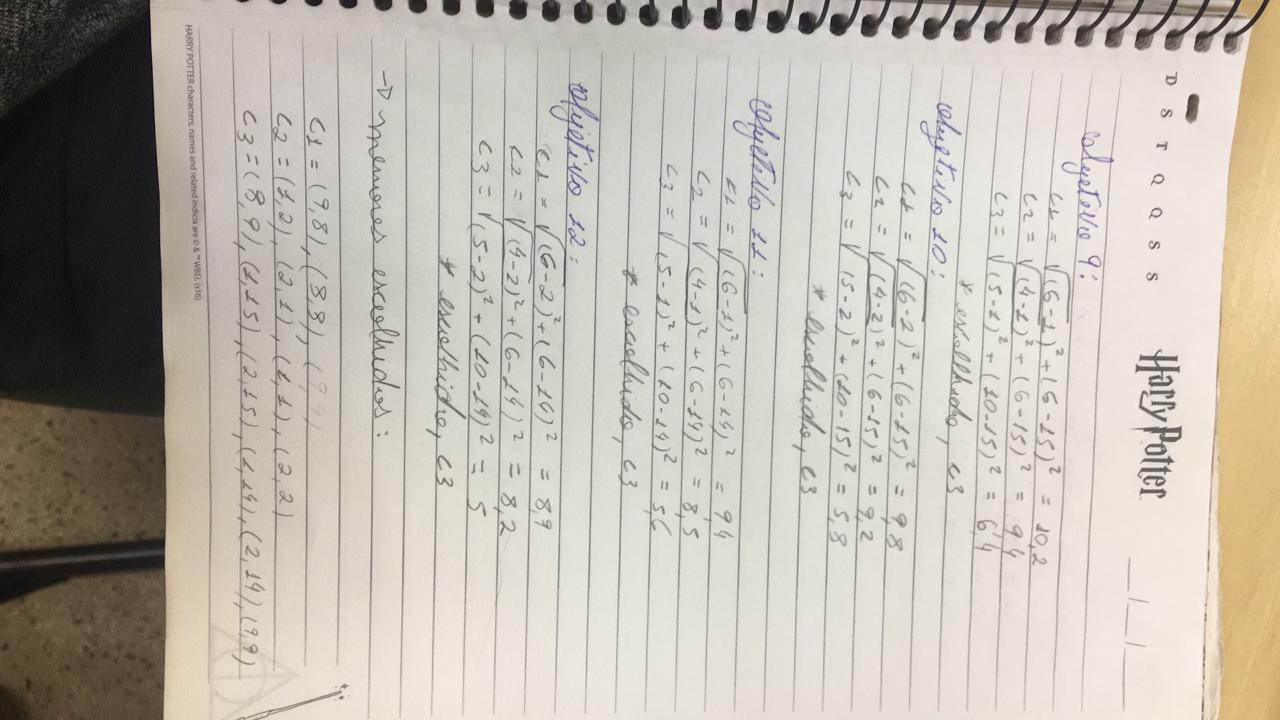 D S T Q Q S S
Harry Potter
__/__/__
objetivo 9:
c1 = √(6-1)² + (6-15)² = 10,2
c2 = √(4-1)² + (6-15)² = 9,4
c3 = √(5-1)² + (10-15)² = 6,4
* escolhido, c3
objetivo 10:
c1 = √(6-2)² + (6-15)² = 9,8
c2 = √(4-2)² + (6-15)² = 9,2
c3 = √(5-2)² + (10-15)² = 5,8
* escolhido, c3
objetivo 11:
c1 = √(6-1)² + (6-14)² = 9,4
c2 = √(4-1)² + (6-14)² = 8,5
c3 = √(5-1)² + (10-14)² = 5,6
* escolhido, c3
objetivo 12:
c1 = √(6-2)² + (6-14)² = 8,9
c2 = √(4-2)² + (6-14)² = 8,2
c3 = √(5-2)² + (10-14)² = 5
* escolhido, c3
→ memores escolhidos:
c1 = (9,8), (8,8),
c2 = (1,2), (2,1), (1,1), (2,2)
c3 = (8,9), (1,15), (2,15), (1,14), (2,14), (9,9)
HARRY POTTER characters, names and related indicia are © & ™ WBEI. (s16)